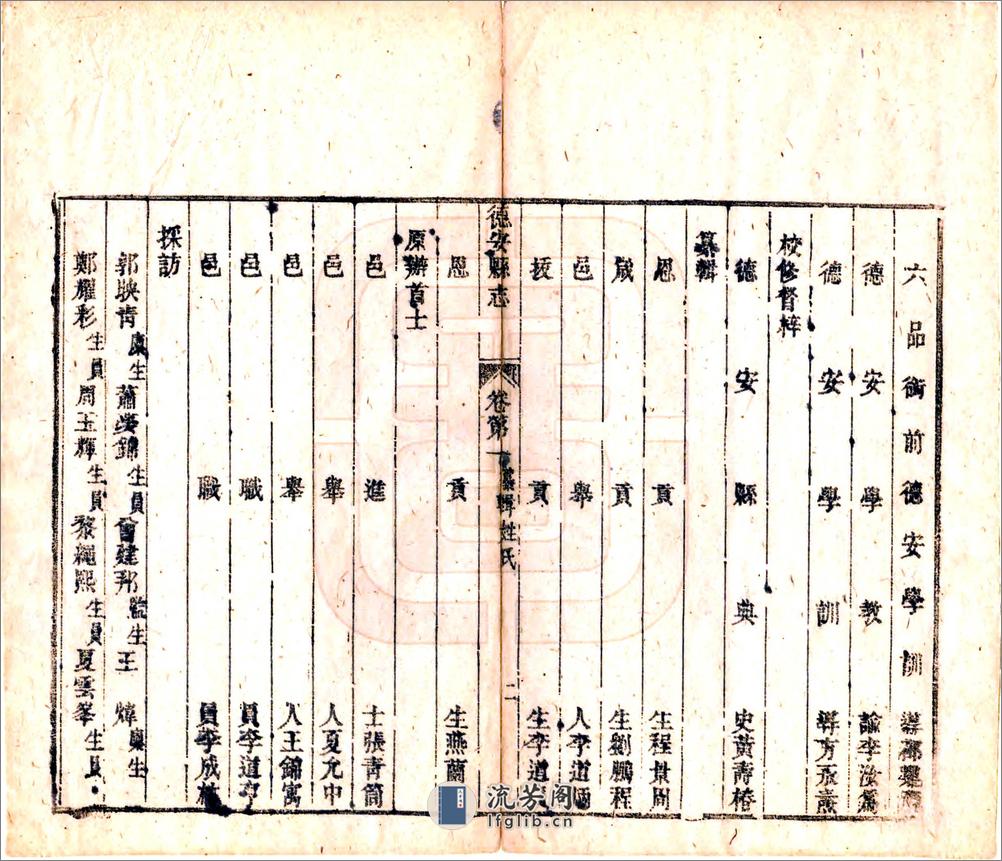 六品銜前德安學訓導
德安學教諭李汝
德安學訓導方
校修督梓
德安縣典史黃壽椿
纂輯
恩貢生程景周
歲貢生劉鵬程
邑舉人李道
拔貢生李道
德安縣志 卷第 纂輯姓氏 二
恩貢生燕蘭
原辦首士
邑進士張青筒
邑舉人夏允中
邑舉人王錦寓
邑職員李道
邑職員李成
採訪
郭映青廩生蕭 錦生員曾建邦監生王煒 生
鄭耀彩生員周玉輝生員黎繩熙生員夏雲峯生員
流芳阁
lfglib.cn